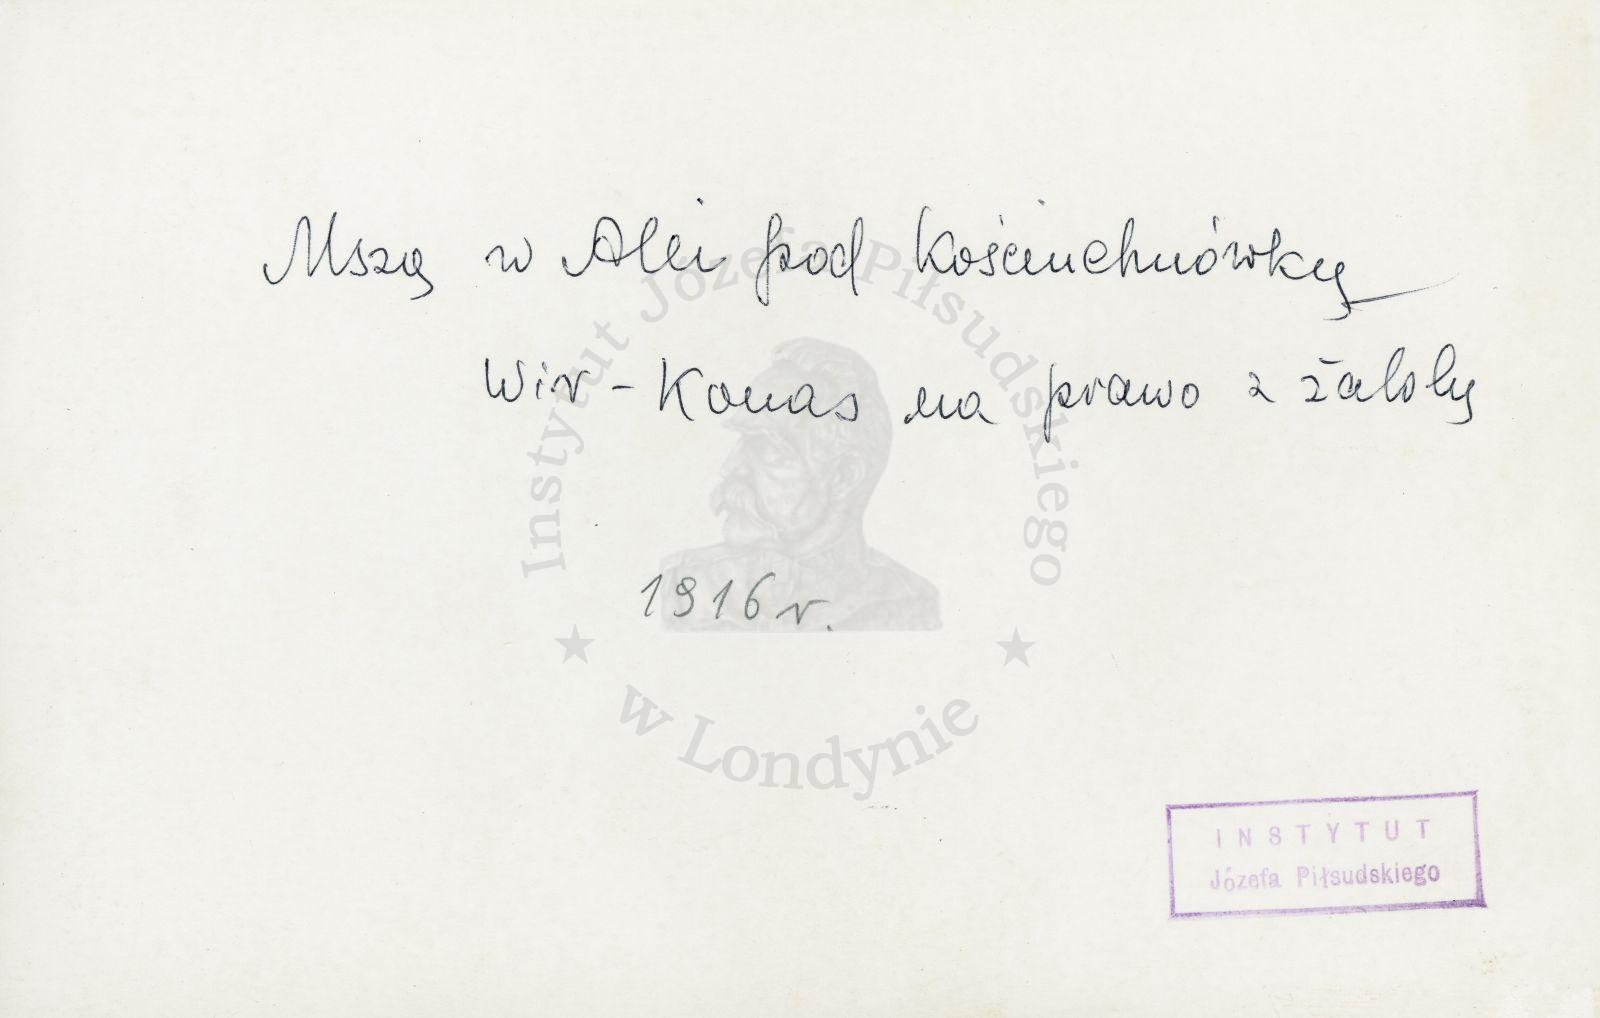 Mszą w Alei pod Kościuchnówką
Wir-Konas na prawo z żałobą
1916 r.
Instytut Józefa Piłsudskiego
★ w Londynie ★
INSTYTUT
Józefa Piłsudskiego